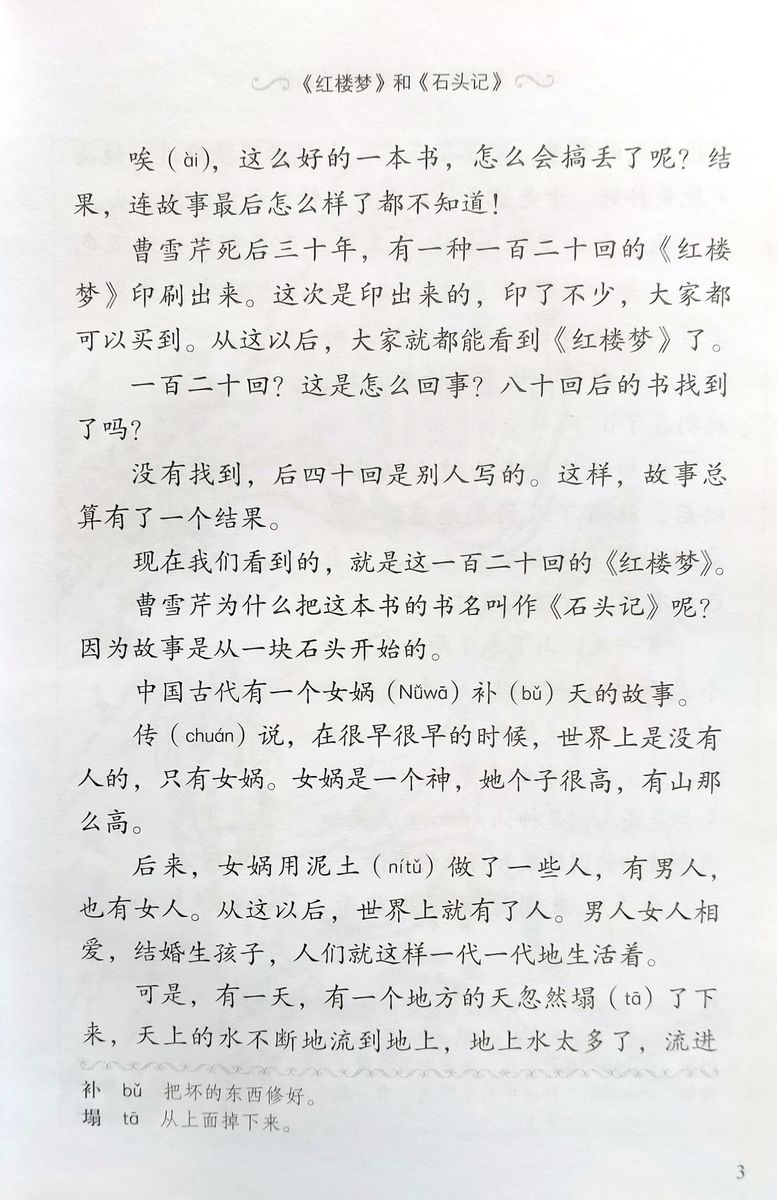 《红楼梦》和《石头记》
唉（ài），这么好的一本书，怎么会搞丢了呢？结
果，连故事最后怎么样了都不知道！
曹雪芹死后三十年，有一种一百二十回的《红楼
梦》印刷出来。这次是印出来的，印了不少，大家都
可以买到。从这以后，大家就都能看到《红楼梦》了。
一百二十回？这是怎么回事？八十回后的书找到
了吗？
没有找到，后四十回是别人写的。这样，故事总
算有了一个结果。
现在我们看到的，就是这一百二十回的《红楼梦》。
曹雪芹为什么把这本书的书名叫作《石头记》呢？
因为故事是从一块石头开始的。
中国古代有一个女娲（Nǚwā）补（bǔ）天的故事。
传（chuán）说，在很早很早的时候，世界上是没有
人的，只有女娲。女娲是一个神，她个子很高，有山那
么高。
后来，女娲用泥土（nítǔ）做了一些人，有男人，
也有女人。从这以后，世界上就有了人。男人女人相
爱，结婚生孩子，人们就这样一代一代地生活着。
可是，有一天，有一个地方的天忽然塌（tā）了下
来，天上的水不断地流到地上，地上水太多了，流进
补 bǔ 把坏的东西修好。
塌 tā 从上面掉下来。
3